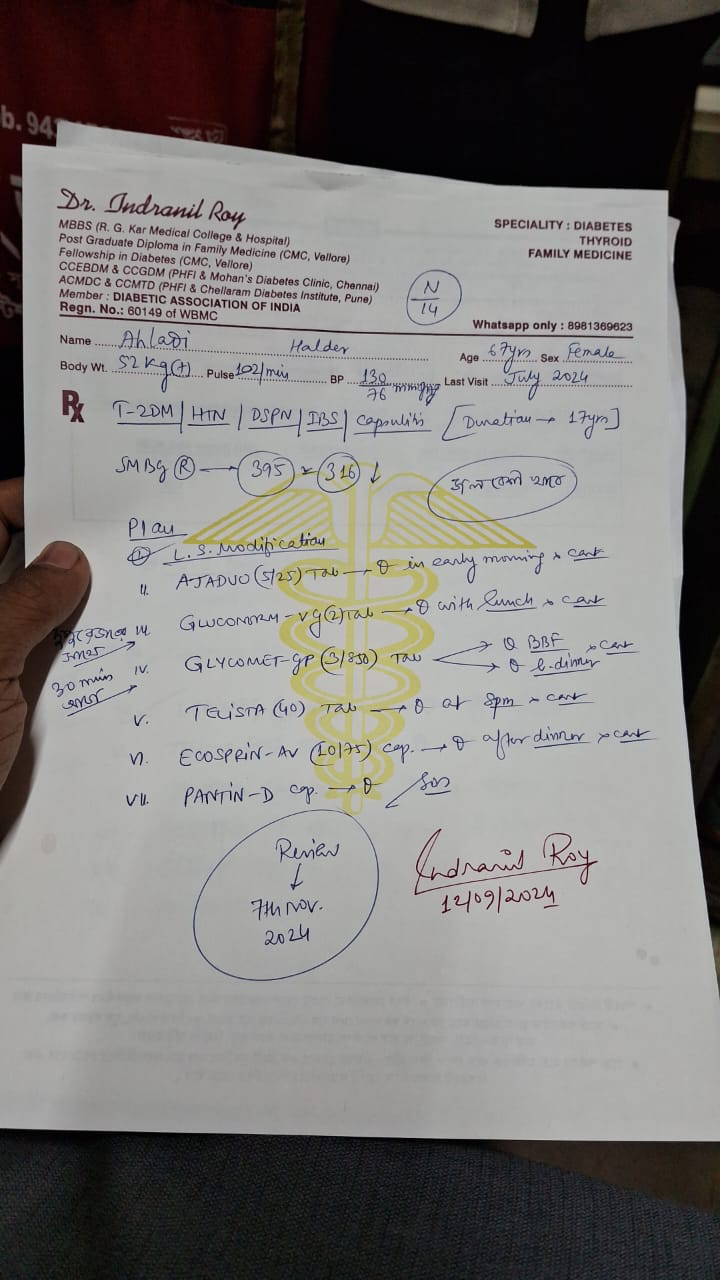 b. 943
Dr. Indranil Roy
MBBS (R. G. Kar Medical College & Hospital)
Post Graduate Diploma in Family Medicine (CMC, Vellore)
Fellowship in Diabetes (CMC, Vellore)
CCEBDM & CCGDM (PHFI & Mohan's Diabetes Clinic, Chennai)
ACMDC & CCMTD (PHFI & Chellaram Diabetes Institute, Pune)
Member : DIABETIC ASSOCIATION OF INDIA
Regn. No.: 60149 of WBMC
SPECIALITY : DIABETES
THYROID
FAMILY MEDICINE
N/14
Whatsapp only : 8981369623
Name Ahladi Halder Age 67yrs Sex Female
Body Wt. 52 kg(↑) Pulse 102/min BP 130/76 mmHg Last Visit July 2024
Rx T-2DM | HTN | DSPN | IBS | Capsulitis [Duration → 17yrs]
SMBG Ⓡ → 395 316 ↓
জল বেশী খাবে
Plan
I. L.S. Modification
II. AJADUO (5/25) Tab → in early morning x cont
III. GLUCONORM-VG(2) Tab → with lunch x cont
IV. GLYCOMET-GP (3/850) Tab BBF b. dinner x cont
30 mins আগে
V. TELISTA (40) Tab → at 8pm x cont
VI. ECOSPRIN-AV (10/75) cap. → after dinner x cont
VII. PANTIN-D cap. → SOS
Review
↓
7th Nov.
2024
Indranil Roy
12/09/2024